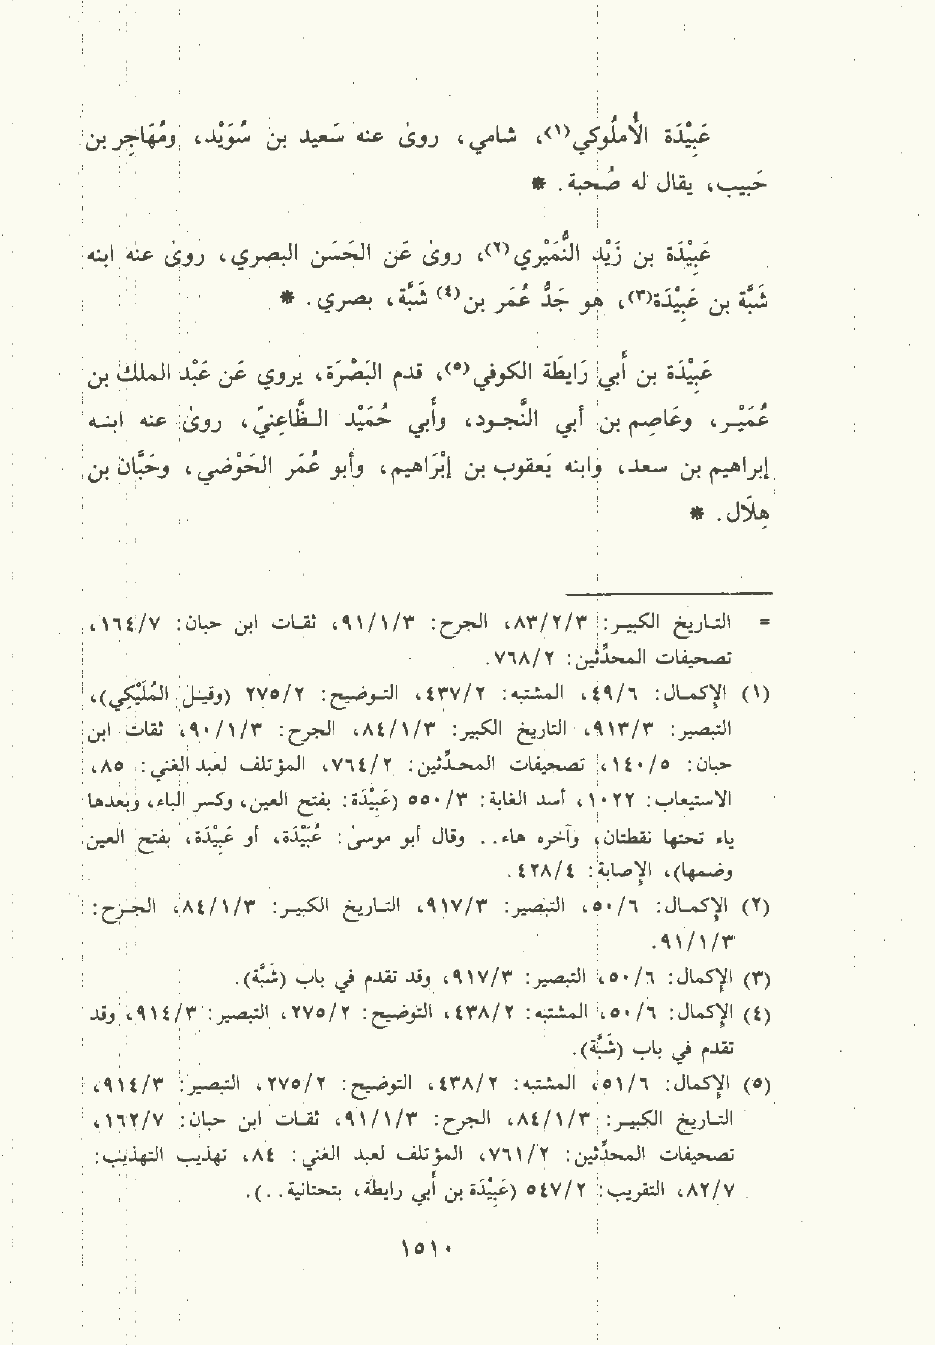 عَبِيْدَة الأُملُوكي(١)، شامي، روىٰ عنه سَعيد بن سُوَيْد، ومُهَاجِر بن
حَبيب، يقال له صُحبة. *
عَبِيْدَة بن زَيْد النُّمَيْري(٢)، روىٰ عَن الحَسَن البصري، روىٰ عنه ابنه
شَبَّة بن عَبِيْدَة(٣)، هو جَدُّ عُمَر بن(٤) شَبَّة، بصري. *
عَبِيْدَة بن أَبي رَايطَة الكوفي(٥)، قدم البَصْرَة، يروي عَن عَبْد الملك بن
عُمَيْر، وعَاصِم بن أبي النَّجود، وأَبي حُمَيْد الظَّاعِنيّ، روىٰ عنه ابنه
إبراهيم بن سعد، وابنه يَعقوب بن إبْرَاهيم، وأبو عُمَر الحَوْضي، وحَبَّان بن
هِلَال. *
= التاريخ الكبير: ٨٣/٢/٣، الجرح: ٩١/١/٣، ثقات ابن حبان: ١٦٤/٧،
تصحيفات المحدِّثين: ٧٦٨/٢.
(١) الإكمال: ٤٩/٦، المشتبه: ٤٣٧/٢، التوضيح: ٢٧٥/٢ (وقيل المُلَيْكِي)،
التبصير: ٩١٣/٣، التاريخ الكبير: ٨٤/١/٣، الجرح: ٩٠/١/٣، ثقات ابن
حبان: ١٤٠/٥، تصحيفات المحدِّثين: ٧٦٤/٢، المؤتلف لعبد الغني: ٨٥،
الاستيعاب: ١٠٢٢، أسد الغابة: ٥٥٠/٣ (عَبِيْدَة: بفتح العين، وكسر الباء، وبعدها
ياء تحتها نقطتان، وآخره هاء.. وقال أبو موسىٰ: عُبَيْدَة، أو عَبِيْدَة، بفتح العين
وضمها)، الإصابة: ٤٢٨/٤.
(٢) الإكمال: ٥٠/٦، التبصير: ٩١٧/٣، التاريخ الكبير: ٨٤/١/٣، الجرح:
٩١/١/٣.
(٣) الإكمال: ٥٠/٦، التبصير: ٩١٧/٣، وقد تقدم في باب (شَبَّة).
(٤) الإكمال: ٥٠/٦، المشتبه: ٤٣٨/٢، التوضيح: ٢٧٥/٢، التبصير: ٩١٤/٣، وقد
تقدم في باب (شَبَّة).
(٥) الإكمال: ٥١/٦، المشتبه: ٤٣٨/٢، التوضيح: ٢٧٥/٢، التبصير: ٩١٤/٣،
التاريخ الكبير: ٨٤/١/٣، الجرح: ٩١/١/٣، ثقات ابن حبان: ١٦٢/٧،
تصحيفات المحدِّثين: ٧٦١/٢، المؤتلف لعبد الغني: ٨٤، تهذيب التهذيب:
٨٢/٧، التقريب: ٥٤٧/٢ (عَبِيْدَة بن أَبي رايطَة، بتحتانية..).
١٥١٠